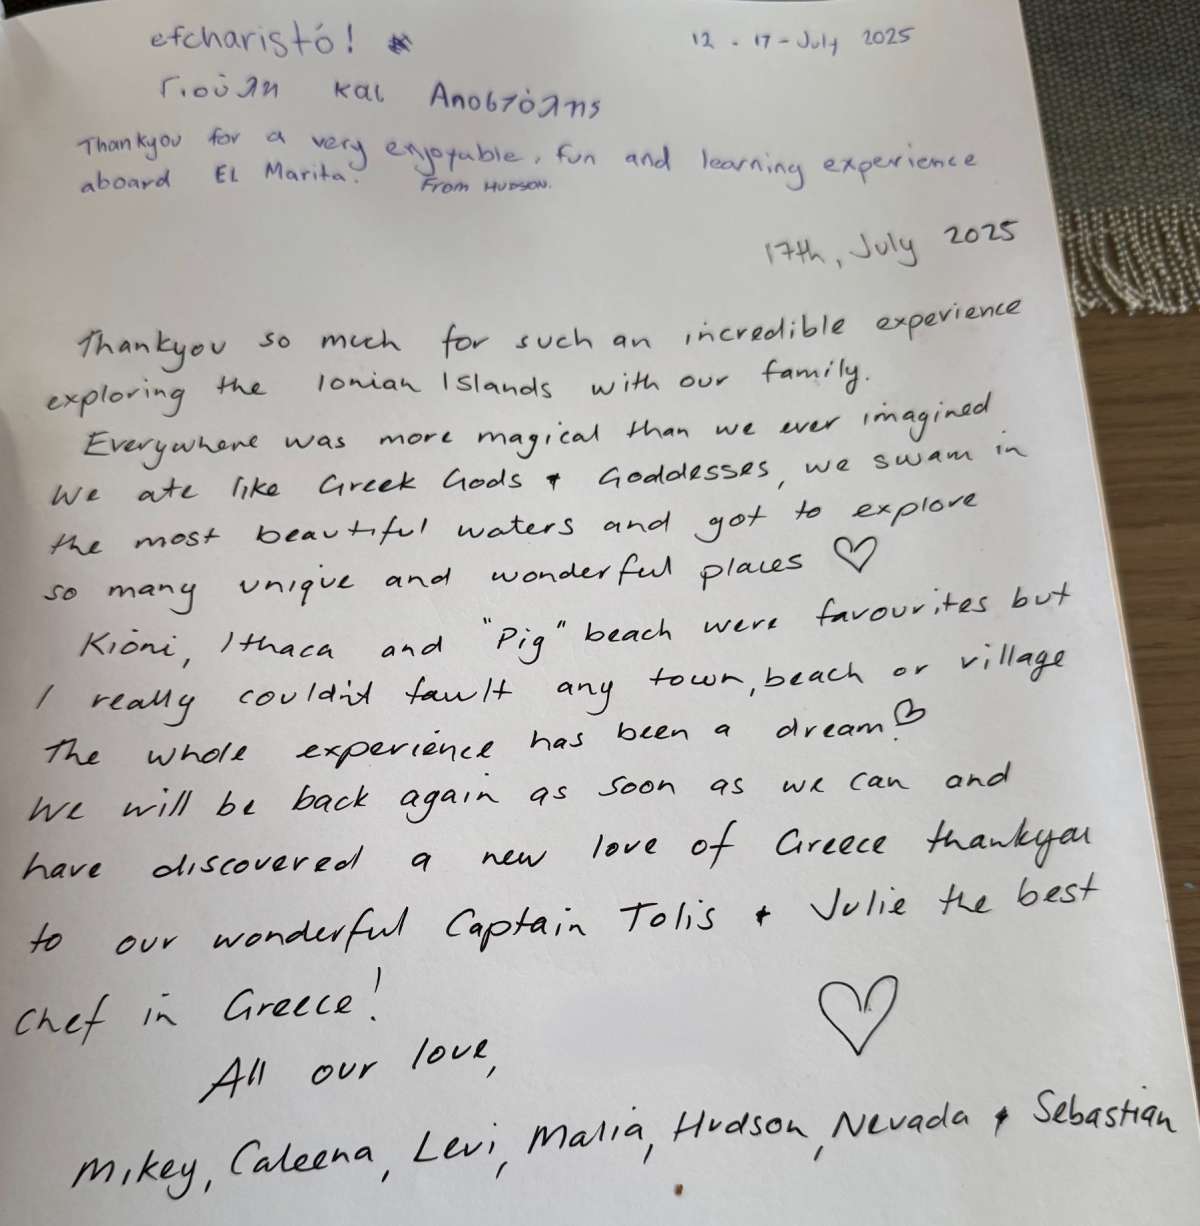 efcharistó!
12 - 17 - July 2025
Γιούλη και Αποστόλης
Thankyou for a very enjoyable, fun and learning experience
aboard EL Marita. From HUDSON.
17th, July 2025
Thankyou so much for such an incredible experience
exploring the Ionian Islands with our family.
Everywhere was more magical than we ever imagined
We ate like Greek Gods & Goddesses, we swam in
the most beautiful waters and got to explore
so many unique and wonderful places ♡
Kioni, Ithaca and "Pig" beach were favourites but
I really couldn't fault any town, beach or village
The whole experience has been a dream! ♡
We will be back again as soon as we can and
have discovered a new love of Greece thankyou
to our wonderful Captain Tolis & Julie the best
chef in Greece!
All our love, ♡
Mikey, Caleena, Levi, Malia, Hudson, Nevada & Sebastian